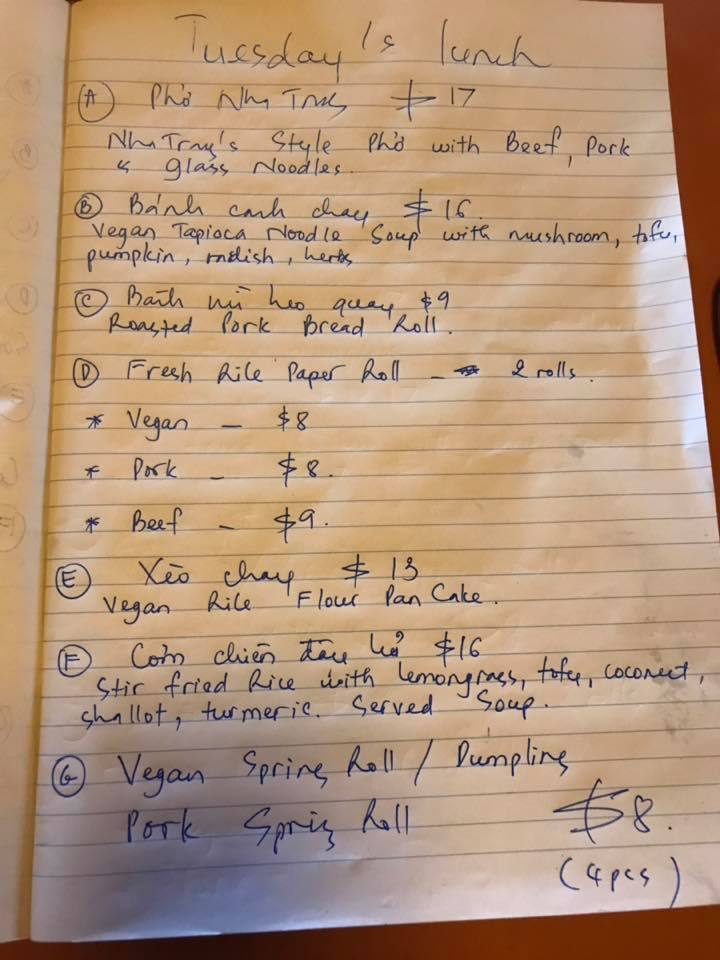 Tuesday's lunch
Ⓐ Phở Nha Trang $17
Nha Trang's Style Phở with Beef, Pork
& glass Noodles.
Ⓑ Bánh canh chay $16.
Vegan Tapioca Noodle Soup with mushroom, tofu,
pumpkin, radish, herbs
Ⓒ Bánh mì heo quay $9
Roasted Pork Bread Roll.
Ⓓ Fresh Rice Paper Roll - 2 rolls.
* Vegan - $8
* Pork - $8.
* Beef - $9.
Ⓔ Xèo chay $13
Vegan Rice Flour Pan Cake.
Ⓕ Cơm chiên đậu hủ $16
Stir fried Rice with lemongrass, tofu, coconut,
shallot, turmeric. Served Soup.
Ⓖ Vegan Spring Roll / Dumpling
Pork Spring Roll $8.
(4pcs)